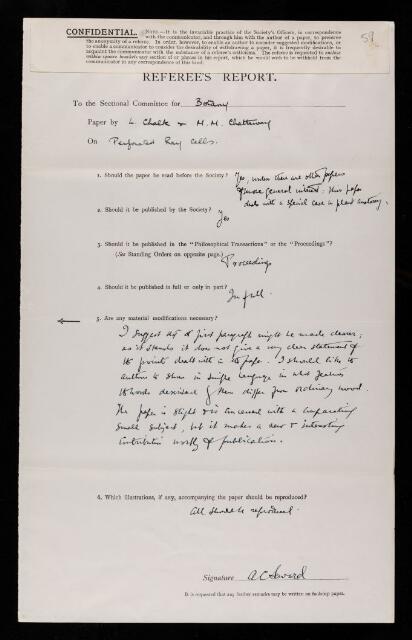 CONFIDENTIAL. [NOTE.—It is the invariable practice of the Society's Officers, in correspondence
with the communicator, and through him with the author of a paper, to preserve
the anonymity of a referee. In order, however, to enable an author to consider suggested modifications, or
to enable a communicator to consider the desirability of withdrawing a paper, it is frequently desirable to
acquaint the communicator with the substance of a referee's criticisms. The referee is requested to enclose
within square brackets any section of phrases in his report, which he would wish to be withheld from the
communicator in any correspondence of this kind.
59
REFEREE'S REPORT.
To the Sectional Committee for Botany
Paper by L. Chalk & M. M. Chattaway
On Perforated Ray Cells.
1. Should the paper be read before the Society? Yes, unless there are other papers
of more general interest: this paper
deals with a special case in plant anatomy.
2. Should it be published by the Society? Yes
3. Should it be published in the "Philosophical Transactions" or the "Proceedings"?
(See Standing Orders on opposite page.) Proceedings
4. Should it be published in full or only in part? In full.
5. Are any material modifications necessary?
I suggest that the first paragraph might be made clearer;
as it stands it does not give a very clear statement of
the points dealt with in the paper. I should like the
authors to show in simple language in what features
the woods described differ from ordinary wood.
The paper is slight & is concerned with a comparatively
small subject, but it makes a new & interesting
contribution worthy of publication.
6. Which illustrations, if any, accompanying the paper should be reproduced?
All should be reproduced.
Signature A C Seward
It is requested that any further remarks may be written on foolscap paper.